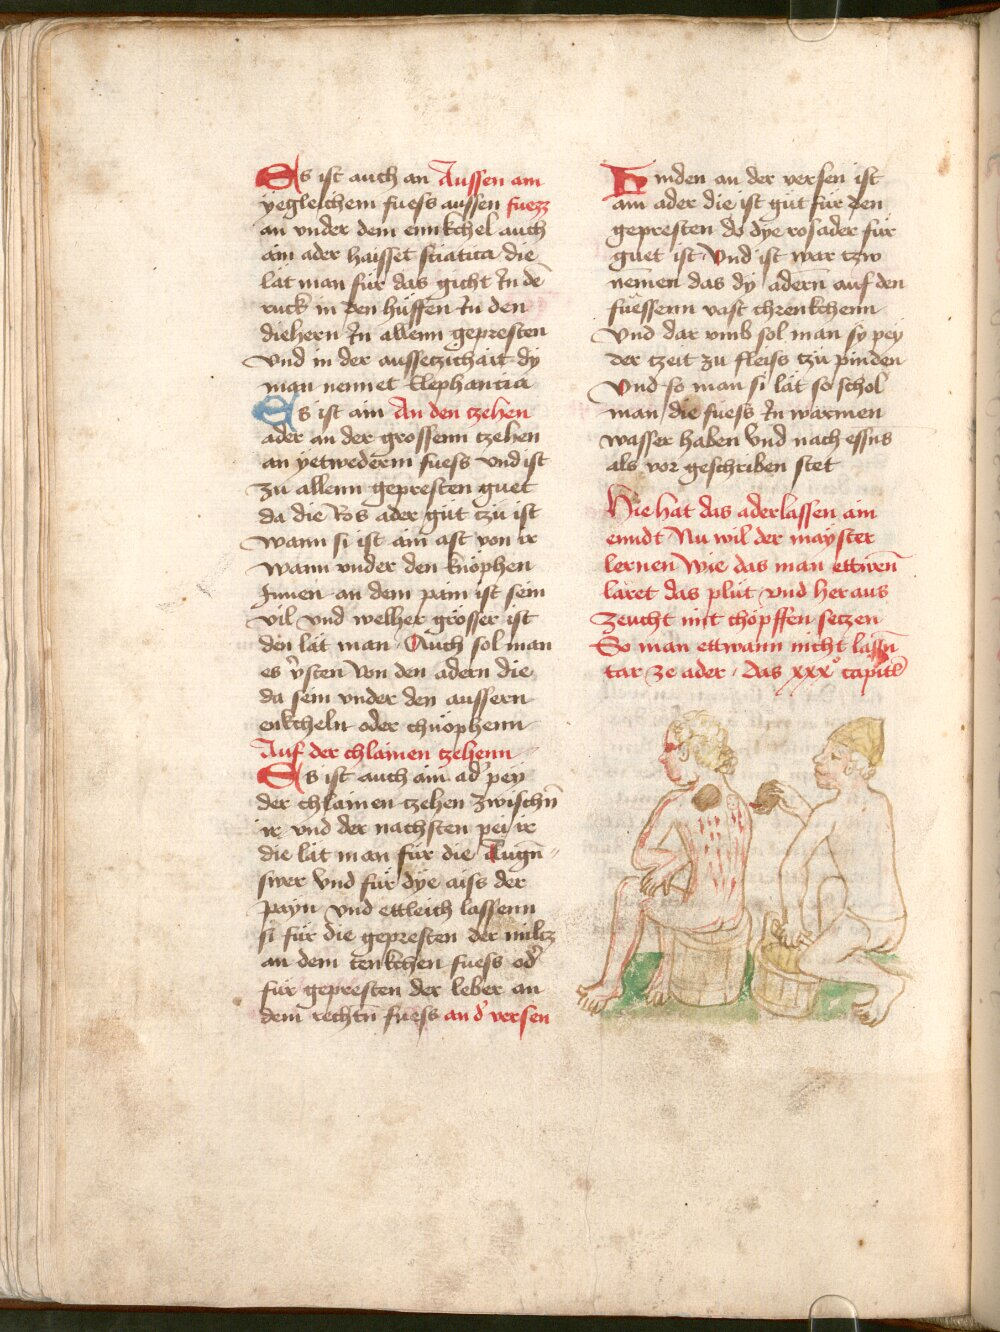 Es ist auch an Aussen am
yegleichem fuess aussen fuezz
an vnder dem ennkchel auch
ain ader haisset sciatica die
lat man für das gicht Jn dē
ruck in den hüffen Jn den
diehern Jn allenn gepresten
vnd in der aussetzichait dy
man nennet Elephancia
Es ist ain An den tzehen
ader an der grossenn tzehen
an yetwederm fuess vnd ist
zu allenn gepresten guet
da die Ros ader güt tzü ist
wann si ist ain ast von ir
wann vnder den knöphen
Jnnen an dem pain ist sein
vil vnd welher grösser ist
den lat man Auch sol man
es ysten von den adern die
da sein vnder den aussern
enkcheln oder chnöphenn
Auf der chlainen tzehenn
Es ist auch ain ad' pey
der chlainen tzehen zwischn̄
ir vnd der nachsten pei ir
die lät man für die Augn̄
swer vnd für dye aiss der
payn vnd ettleich lassenn
si für die gepresten der miltz
an dem tenkchen fuess od'
für gepresten der leber an
dem rechtn fuess an d' versen
Hinden an der versen ist
ain ader die ist güt für den
gepresten do dye rosader für
guet ist Vnd ist war tzw
nemen das dy adern auf den
füessenn vast chrenkchenn
Vnd dar vmb sol man sy pey
der tzeit zu fleiss tzü pinden
Vnd so man si lät so schol
man die fuess Jn warmen
wasser haben vnd nach essns
als vor geschriben stet
Hie hat das aderlassen ain
enndt Nu wil der mayster
lernen wie das man ettwen̄
läret das plüt vnd her aus
zeucht mit chöpffen setzen
So man ettwann nicht lassn̄
tar ze ader Das xxx° capitel